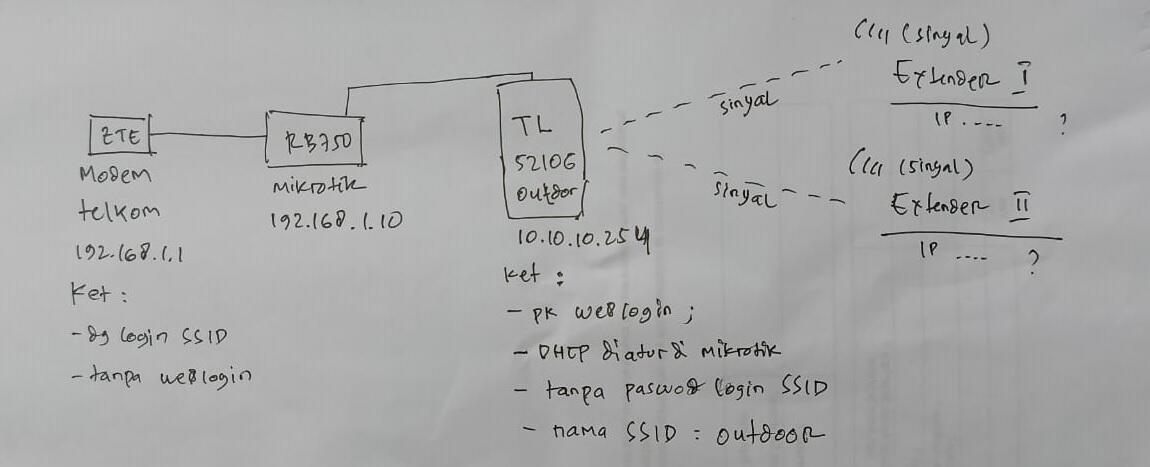 ZTE
Modem
telkom
192.168.1.1
Ket :
- dg login SSID
- tanpa weblogin
RB750
mikrotik
192.168.1.10
TL
5210G
outdor
10.10.10.254
Ket :
- pk weblogin ;
- DHCP diatur di mikrotik
- tanpa paswod login SSID
- nama SSID : outdoor
sinyal
sinyal
(sinyal)
Extender I
IP .... ?
(sinyal)
Extender II
IP .... ?